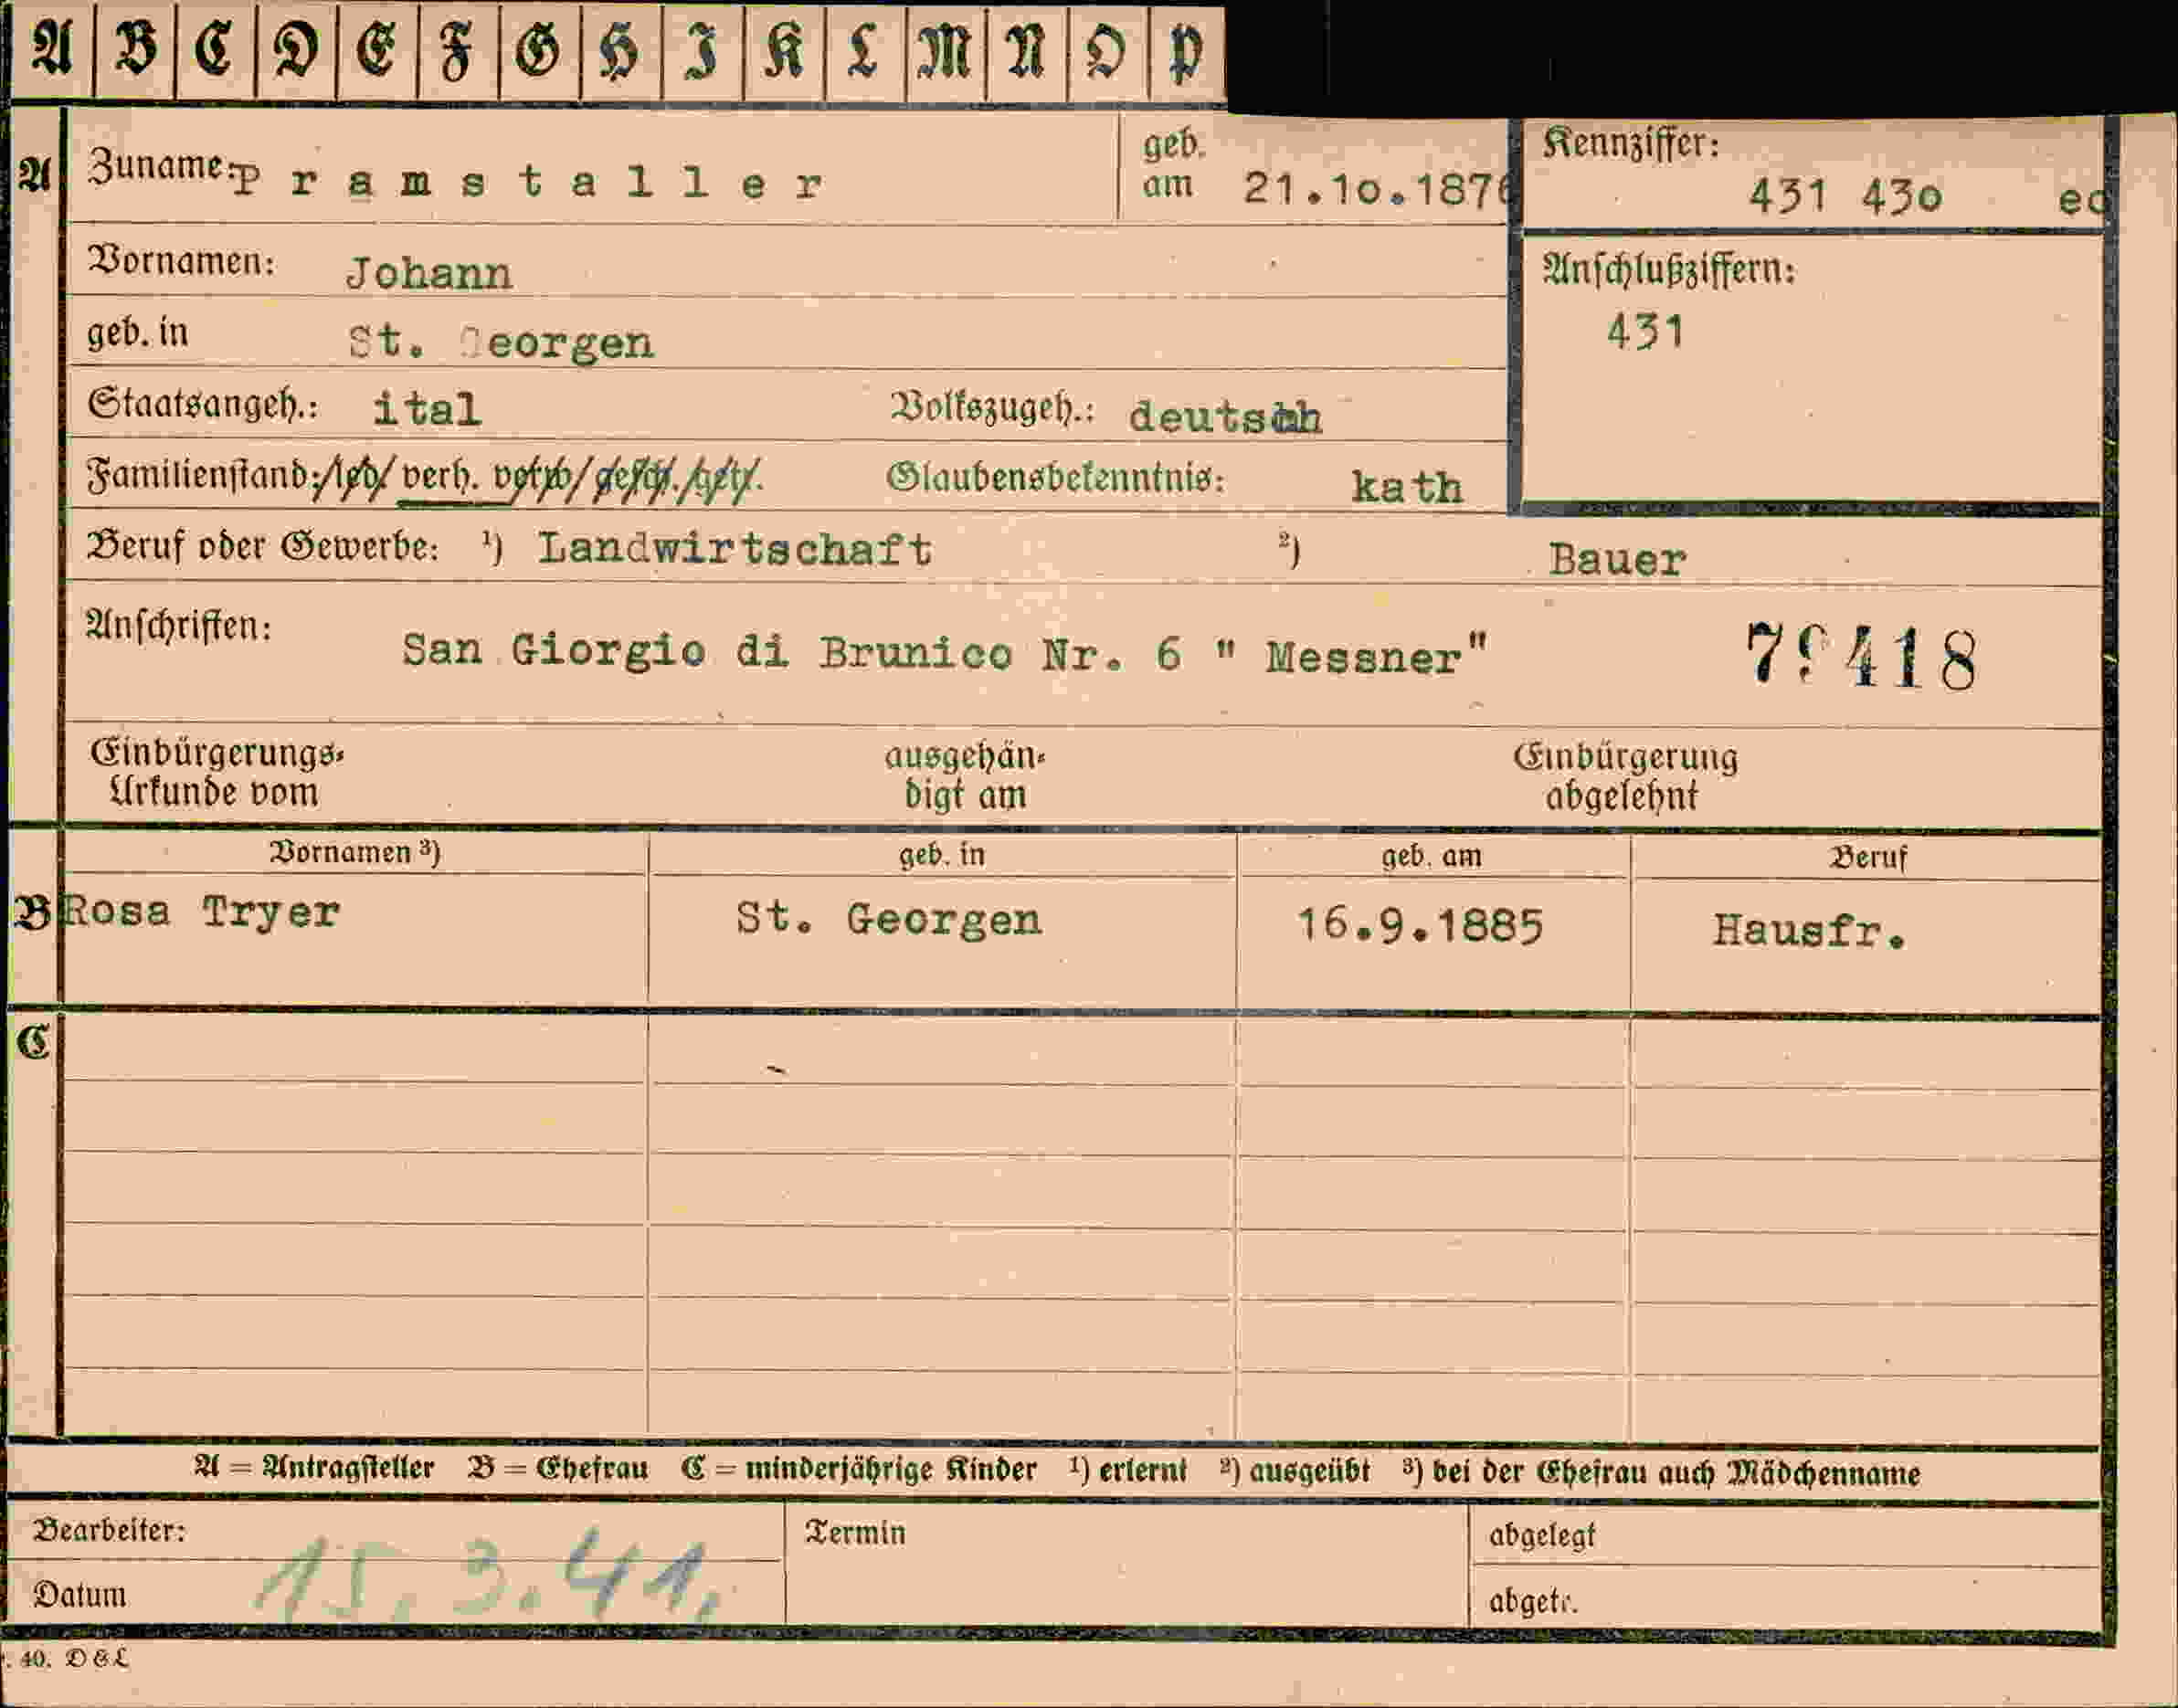 A B C D E F G H I K L M N O P
A Zuname: Pramstaller geb. am 21.10.1876 Kennziffer: 431 430 ec
Vornamen: Johann Anschlußziffern:
geb. in St. Georgen 431
Staatsangeh.: ital Volkszugeh.: deutsch
Familienstand: led. verh. verw. gesch. getr. Glaubensbekenntnis: kath
Beruf oder Gewerbe: ¹) Landwirtschaft ²) Bauer
Anschriften: San Giorgio di Brunico Nr. 6 " Messner" 79418
Einbürgerungs- ausgehän- Einbürgerung
Urkunde vom digt am abgelehnt
Vornamen ³) geb. in geb. am Beruf
B Rosa Tryer St. Georgen 16.9.1885 Hausfr.
C
A = Antragsteller B = Ehefrau C = minderjährige Kinder ¹) erlernt ²) ausgeübt ³) bei der Ehefrau auch Mädchenname
Bearbeiter: Termin abgelegt
Datum 15.3.41. abgetr.
. 40. D & L